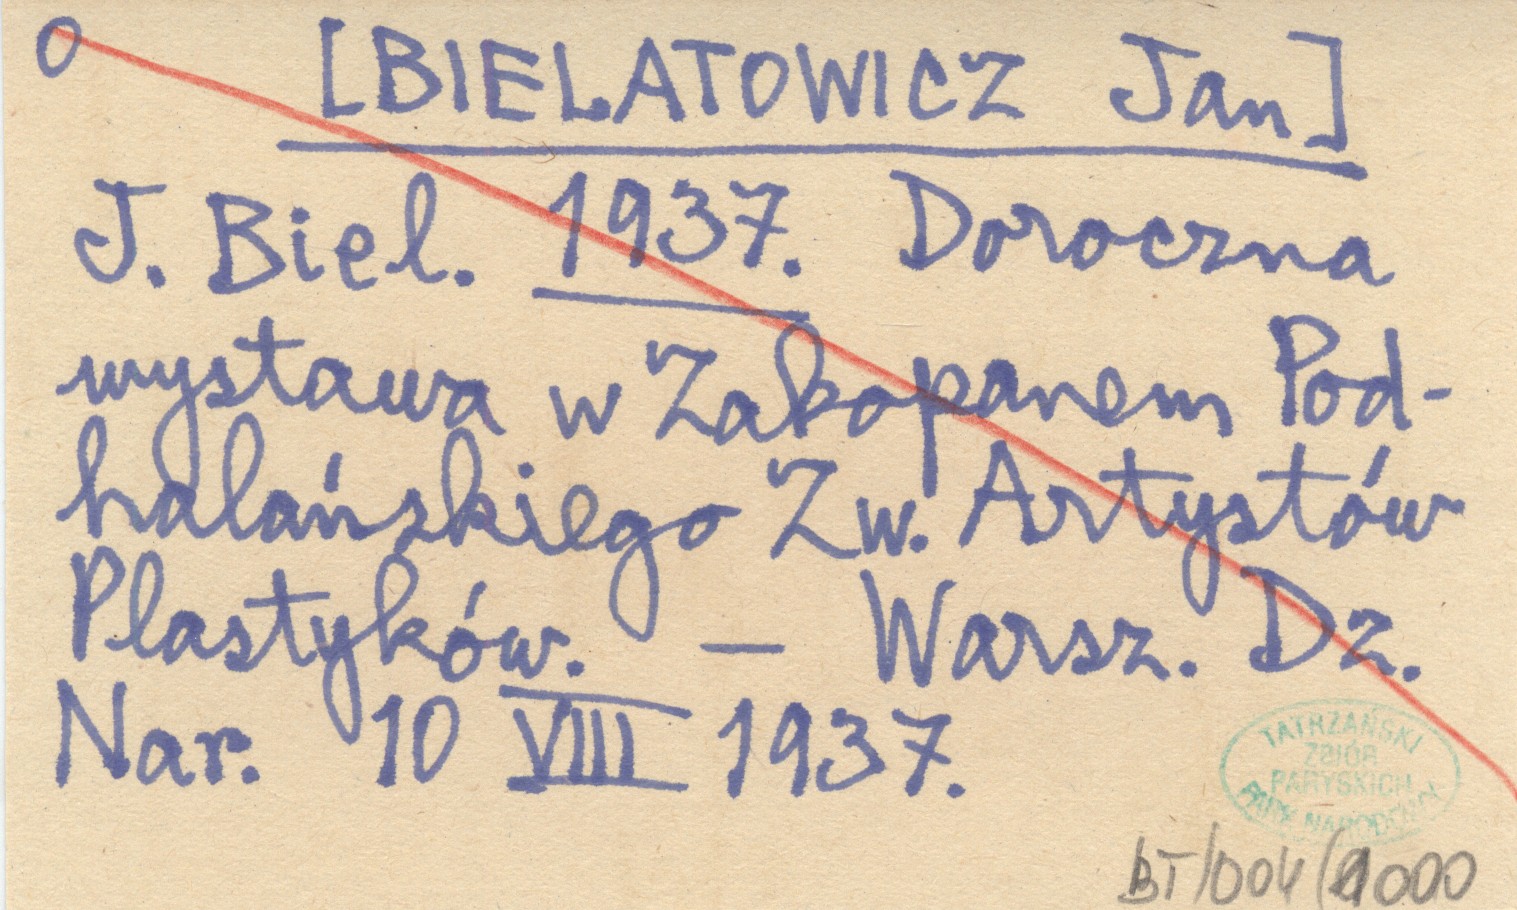 O
[BIELATOWICZ Jan]
J. Biel. 1937. Doroczna
wystawa w Zakopanem Pod-
halańskiego Zw. Artystów
Plastyków. — Warsz. Dz.
Nar. 10 VIII 1937.
TATRZAŃSKI
ZBIÓR
PARYSKICH
PARK NARODOWY
BT/004/1000